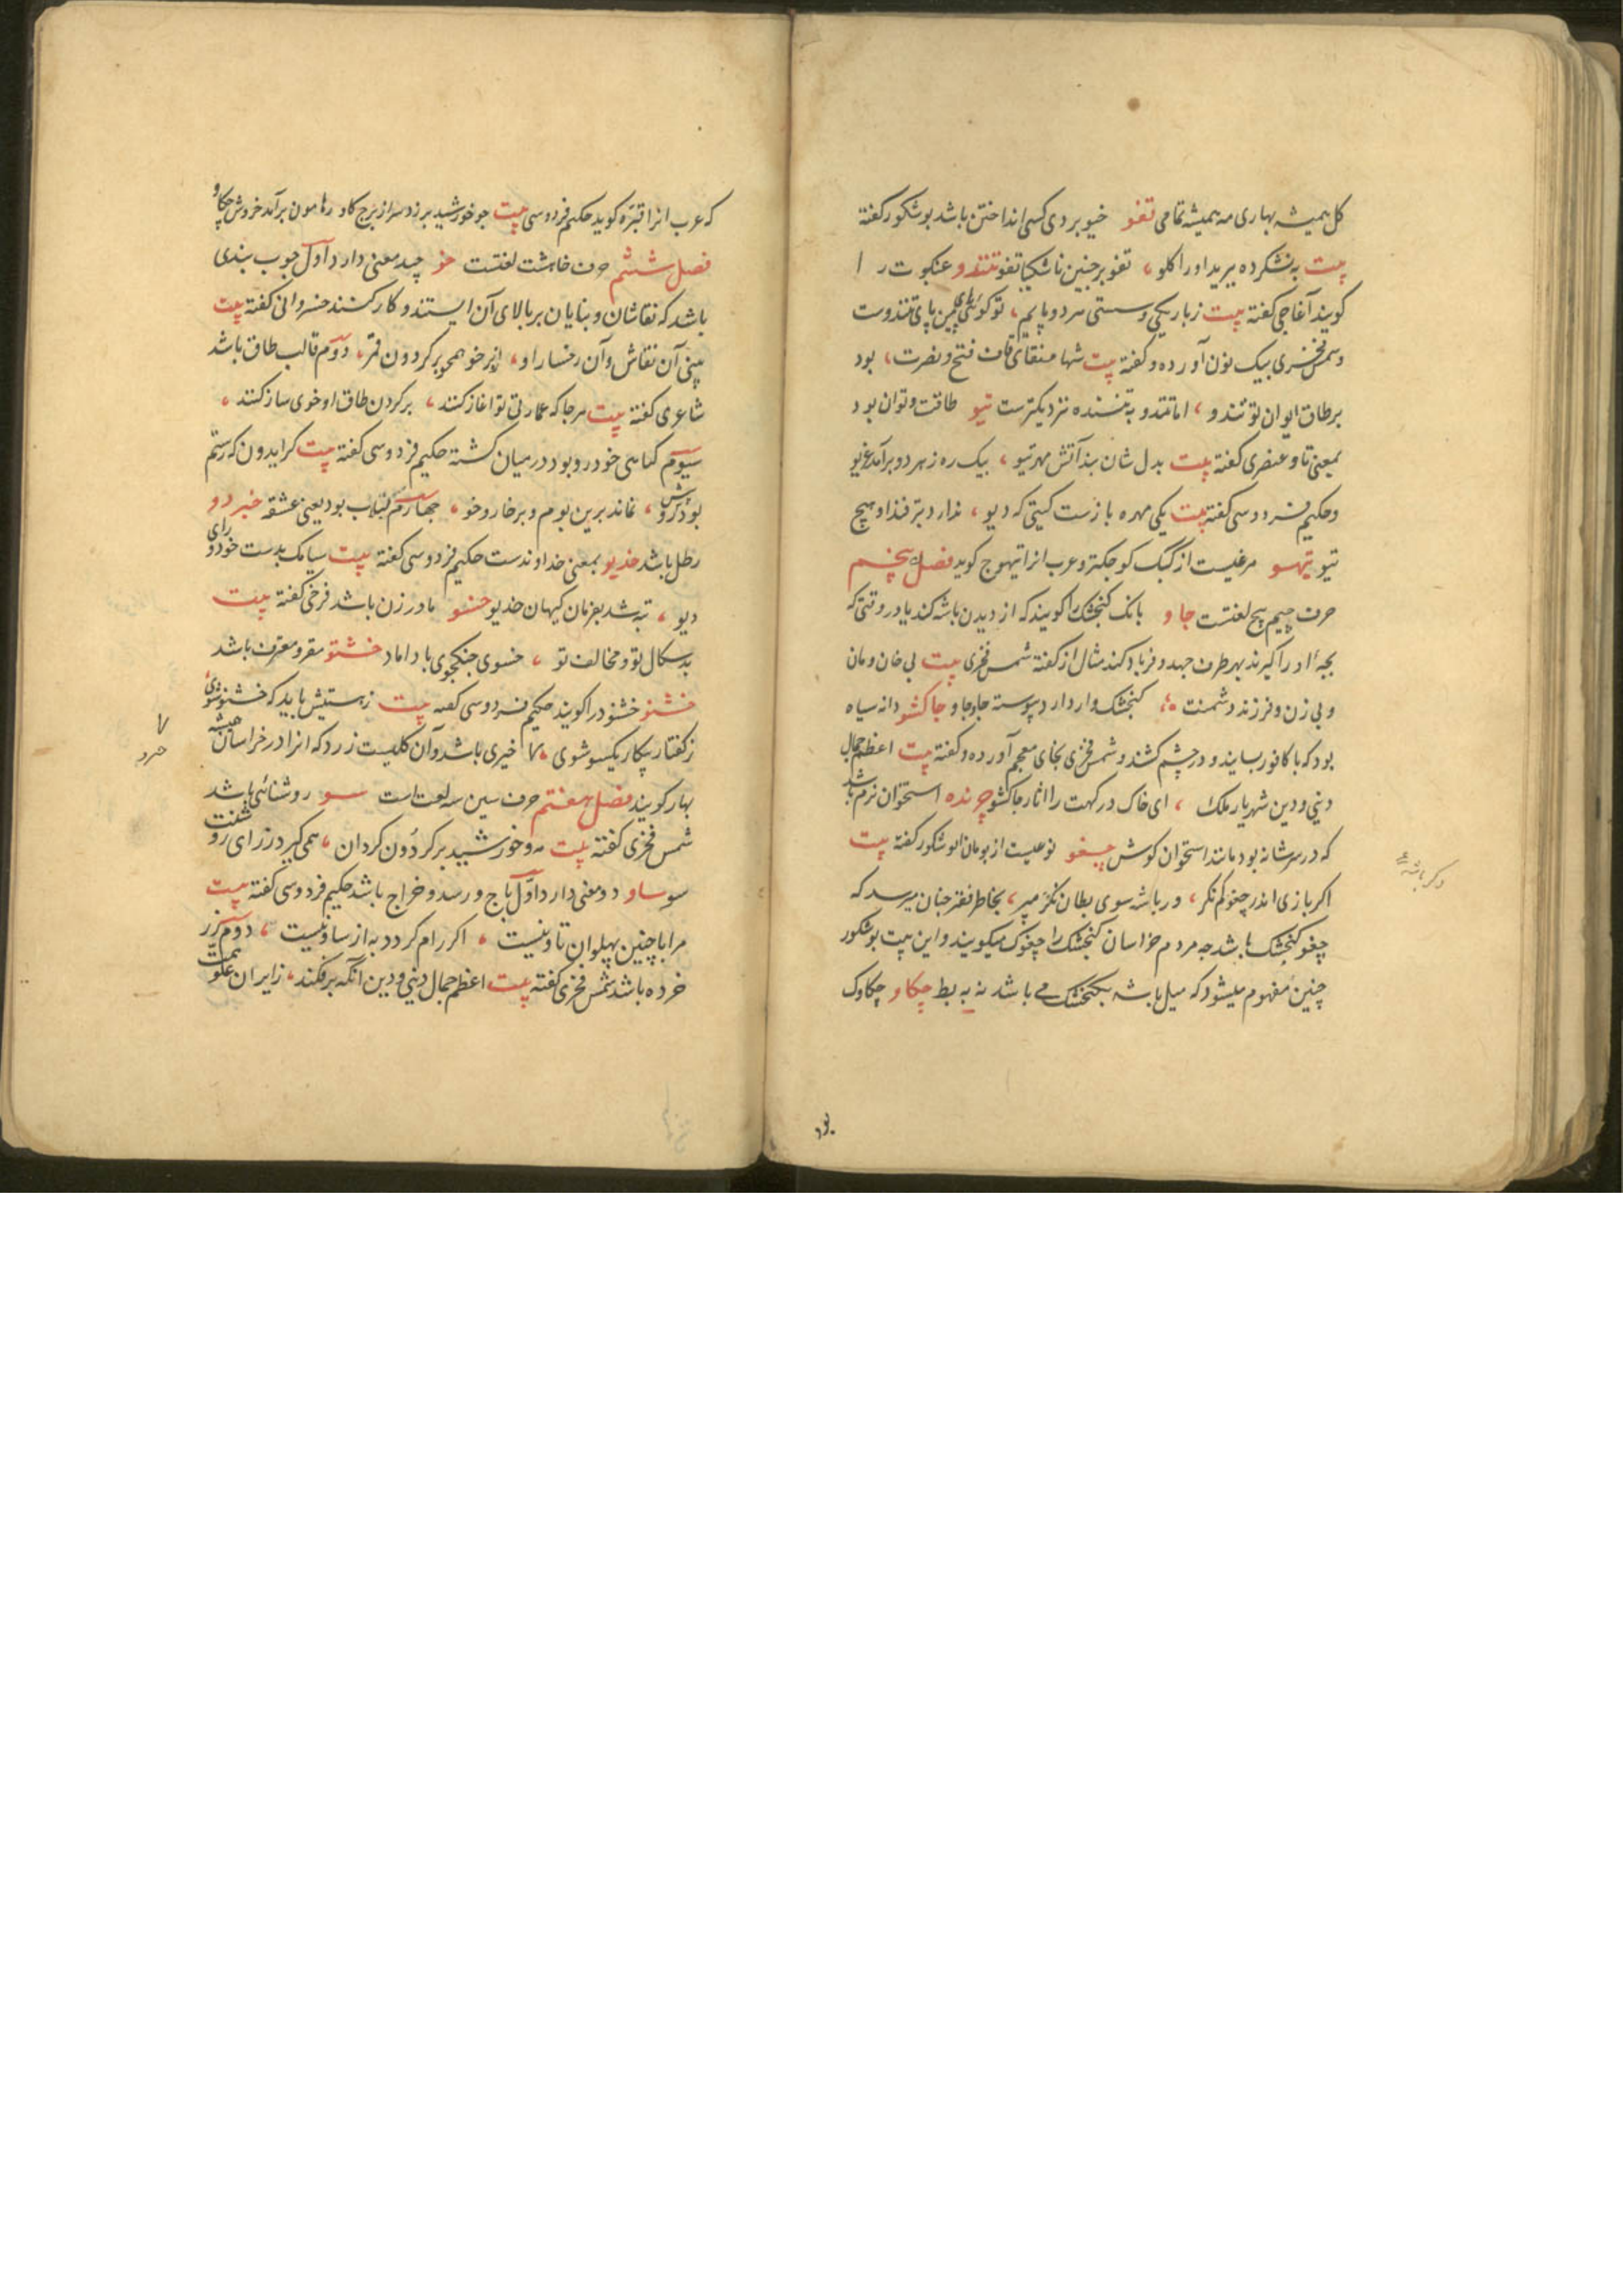 کل همیشه بهاری مه همیشه تمامی تفو خیو بر دی کسی انداختن باشد بوشکور کفته
بیت به نشکرده ببرید او را کلو، تفو بر چنین ناشکیبا تفو تنندو عنکبوت را
کویند آغاجی کفته بیت ز باریکی و سستی هر دو پایم، تو کوئی پای من پای تنندوست
و شمس فخری بیک نون آورده و کفته بیت شها عنقای قاف فتح و نصرت، بود
بر طاق ایوان تو تندو، اما تندو به تننده نزدیکترست تیو طاقت و توان بود
بمعنی تاو عنصری کفته بیت بدل شان بد آتش مهر تیو، بیک ره ز هر دو برآمد غریو
و حکیم فردوسی کفته بیت یکی مهره بازست کیتی که دیو، ندارد بترفند او هیچ
تیو تیهو مرغیست از کبک کوچکتر و عرب انرا تیهوج کوید فصل پنجم
حرف جیم پنج لغتست جاو بانک کنجشک را کویند که از دیدن باشه کند یا در وقتی که
بچهٔ او را کیرند بهر طرف جهد و فریاد کند مثال از کفتهٔ شمس فخری بیت بی خان و مان
و بی زن و فرزند دشمنت، کنجشک وار دارد پیوسته جاو جاو جاکشو دانه سیاه
بود که با کافور بسایند و در چشم کشند و شمس فخری بخای معجم آورده و کفته بیت اعظم جمال
دینی و دین شهریار ملک، ای خاک درکهت را اثار جاکشو چرنده استخوان نرم باشد
که در سر شانه بود مانند استخوان کوش چغو نوعیست از بومان ابوشکور کفته بیت
اکر بازی اندر چغو کم نکر، ور باشه سوی بطان نکز مپر، بخاطر فقیر چنان میرسد که
چغو کنجشک باشد چه مردم خراسان کنجشک را چغوک میکویند و این بیت بوشکور
چنین مفهوم میشود که میل باشه بکنجشک می باشد نه به بط چکاو چکاوک
که عرب انرا قنبره کوید حکیم فردوسی بیت چو خورشید بر زد سر از برج کاو ز هامون برآمد خروش چکاو
فصل ششم حرف خا هشت لغتست خو چند معنی دارد اول چوب بندی
باشد که نقاشان و بنایان بر بالای آن ایستند و کار کنند خسروانی کفته بیت
بینی آن نقاش و آن رخسار او، از بر خو همچو بر کردون قمر، دوم قالب طاق باشد
شاعری کفته بیت هر جا که عمارتی تو اغاز کنند، بر کردن طاق او خوی ساز کنند،
سیوم کیاهی خودرو بود در میان کشته حکیم فردوسی کفته بیت کر ایدون که رستم
بود پیش رو، نماند برین بوم و بر خار و خو، چهارم لبلاب بود یعنی عشقه خبردو
رطل باشد خدیو بمعنی خداوندست حکیم فردوسی کفته بیت سیامک بدست خود و رای
دیو، تبه شد بفرمان کیهان خدیو خسو مادر زن باشد فرخی کفته بیت
بدسکال تو و مخالف تو، خسوی جنکجوی با داماد خستو مقر و معترف باشد
خشنو خشنود را کویند حکیم فردوسی کفته بیت زهستیش باید که خستو شوی
ز کفتار پیکار یکسو شوی خیری باشد و آن کلیست زرد که انرا در خراسان همیشه
بهار کویند فصل هفتم حرف سین سه لغت است سو روشنائی باشد
شمس فخری کفته بیت مه و خورشید بر کردون کردان، همی کیرد ز رای روشنت
سو ساو دو معنی دارد اول باج و رسد و خراج باشد حکیم فردوسی کفته بیت
مرا با چنین پهلوان تاو نیست، اکر رام کردد به از ساو نیست، دوم زر
خرده باشد شمس فخری کفته بیت اعظم جمال دینی و دین انکه بر فکند، ز ایران علو همت